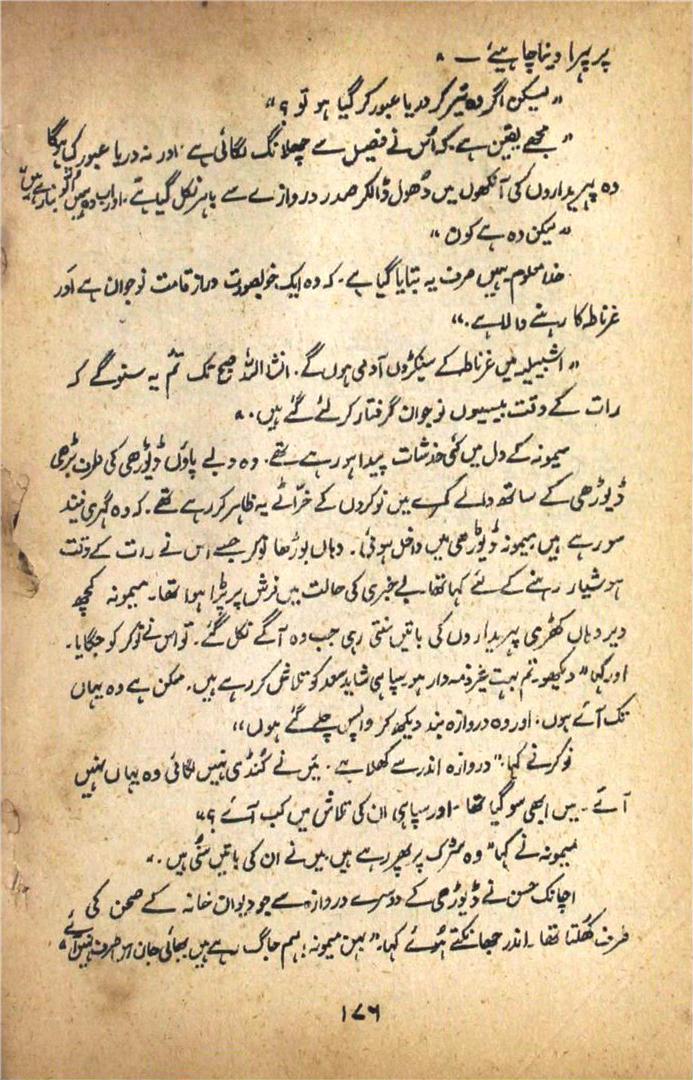 پر پہرا دینا چاہیئے۔"
"لیکن اگر وہ تیر کر دریا عبور کر گیا ہو تو؟"
"مجھے یقین ہے کہ اُس نے فصیل سے چھلانگ لگائی ہے اور نہ دریا عبور کیا ہوگا
وہ پہریداروں کی آنکھوں میں دُھول ڈالکر صدر دروازے سے باہر نکل گیا ہے۔ اور اب وہ ہمیں اُلّو بنا رہے ہیں"
"لیکن وہ ہے کون"
خدا معلوم ہمیں صرف یہ بتایا گیا ہے۔ کہ وہ ایک خوبصورت دراز قامت نوجوان ہے اور
غرناطہ کا رہنے والا ہے۔"
"اشبیلیہ میں غرناطہ کے سینکڑوں آدمی ہوں گے۔ انشااللہ صبح تک تم یہ سنو گے کہ
رات کے وقت بیسیوں نوجوان گرفتار کر لئے گئے ہیں۔"
میمونہ کے دل میں کئی خدشات پیدا ہو رہے تھے۔ وہ دبے پاؤں ڈیوڑھی کی طرف بڑھی
ڈیوڑھی کے ساتھ والے کمرے میں نوکروں کے خرّاٹے یہ ظاہر کر رہے تھے۔ کہ وہ گہری نیند
سو رہے ہیں میمونہ ڈیوڑھی میں داخل ہوئی۔ وہاں بوڑھا نوکر جسے اس نے رات کے وقت
ہوشیار رہنے کے لئے کہا تھا بے خبری کی حالت میں فرش پر پڑا ہوا تھا۔ میمونہ کچھ
دیر وہاں کھڑی پہریداروں کی باتیں سنتی رہی جب وہ آگے نکل گئے۔ تو اس نے نوکر کو جگایا۔
اور کہا "دیکھو۔ تم بہت غیر ذمہ دار ہو سپاہی شاید سعد کو تلاش کر رہے ہیں۔ ممکن ہے وہ یہاں
تک آئے ہوں۔ اور وہ دروازہ بند دیکھ کر واپس چلے گئے ہوں"
نوکر نے کہا۔ "دروازہ اندر سے کھلا ہے۔ میں نے کُنڈی نہیں لگائی وہ یہاں نہیں
آئے۔ میں ابھی سو گیا تھا۔ اور سپاہی ان کی تلاش میں کب آئے؟"
میمونہ نے کہا "وہ سڑک پر پھر رہے ہیں میں نے ان کی باتیں سُنی ہیں۔"
اچانک حسن نے ڈیوڑھی کے دوسرے دروازہ سے جو دیوان خانہ کے صحن کی
طرف کُھلتا تھا۔ اندر جھانکتے ہوئے کہا۔ "بہن میمونہ! ہم جاگ رہے ہیں بھائی جان اس طرف نہیں آئے"
۱۷۶